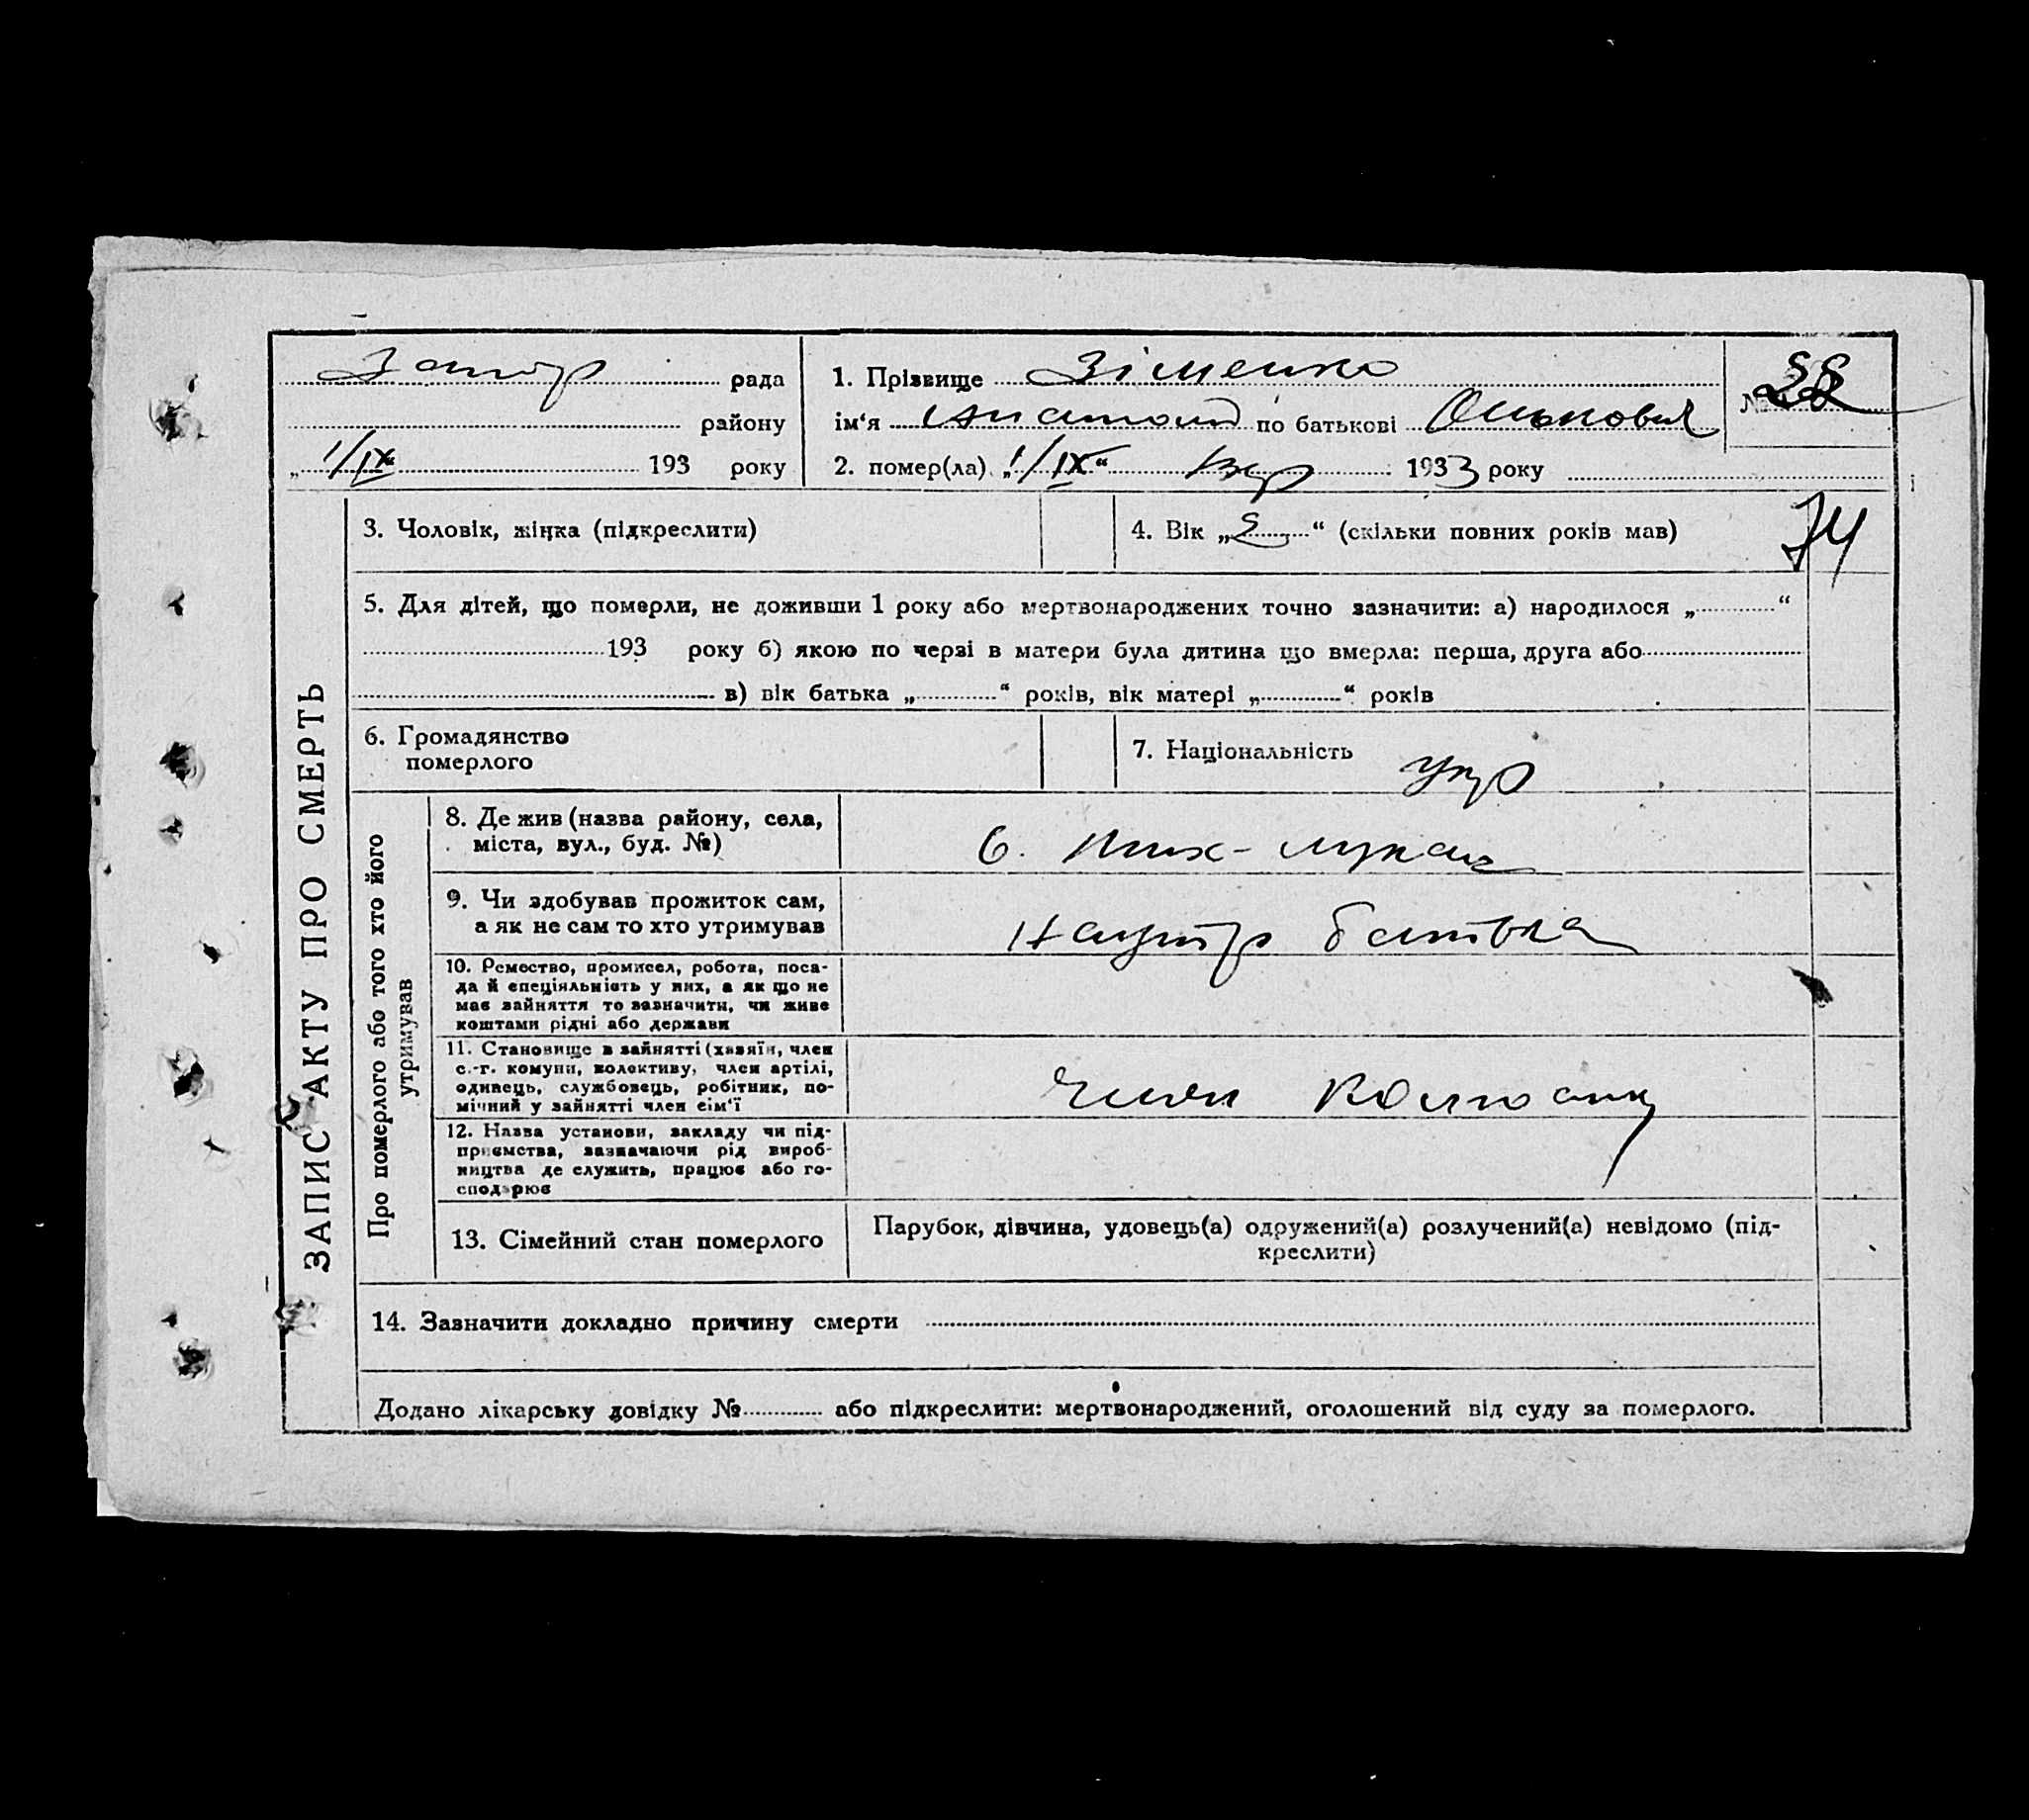 рада
району
„ 1/IX 193 року
1. Прізвище Зіменко
ім‘я Анатолій по батькові
2. помер(ла) „1/IX“ 1933 року
№
3. Чоловік, жінка (підкреслити)
4. Вік „ “ (скільки повних років мав)
74
5. Для дітей, що померли, не доживши 1 року або мертвонароджених точно зазначити: а) народилося „ “
193 року б) якою по черзі в матери була дитина що вмерла: перша, друга або
в) вік батька „ “ років, вік матері „ “ років
6. Громадянство
померлого
7. Національність укр
ЗАПИС АКТУ ПРО СМЕРТЬ
Про померлого або того хто його
утримував
8. Де жив (назва району, села,
міста, вул., буд. №)
9. Чи здобував прожиток сам,
а як не сам то хто утримував
батька
10. Ремество, промисел, робота, поса-
да й спеціяльність у них, а як що не
має зайняття то зазначити, чи живе
коштами рідні або держави
11. Становище в зайнятті (хазяїн, член
с.-г. комуни, колективу, член артілі,
одинець, службовець, робітник, по-
мічний у зайнятті член сім‘ї
член колгоспу
12. Назва установи, закладу чи під-
приємства, зазначаючи рід вироб-
ництва де служить, працює або го-
сподарює
13. Сімейний стан померлого
Парубок, дівчина, удовець(а) одружений(а) розлучений(а) невідомо (під-
креслити)
14. Зазначити докладно причину смерти
Додано лікарську довідку № або підкреслити: мертвонароджений, оголошений від суду за померлого.